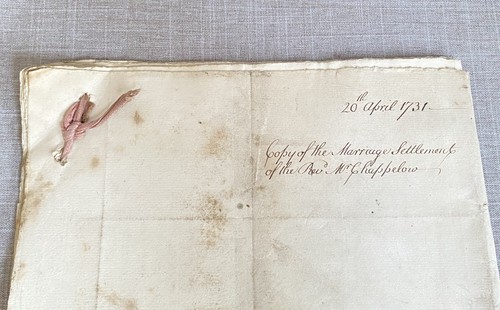 20th April 1731
Copy of the Marriage Settlement
of the Revd. Mr Chappelow